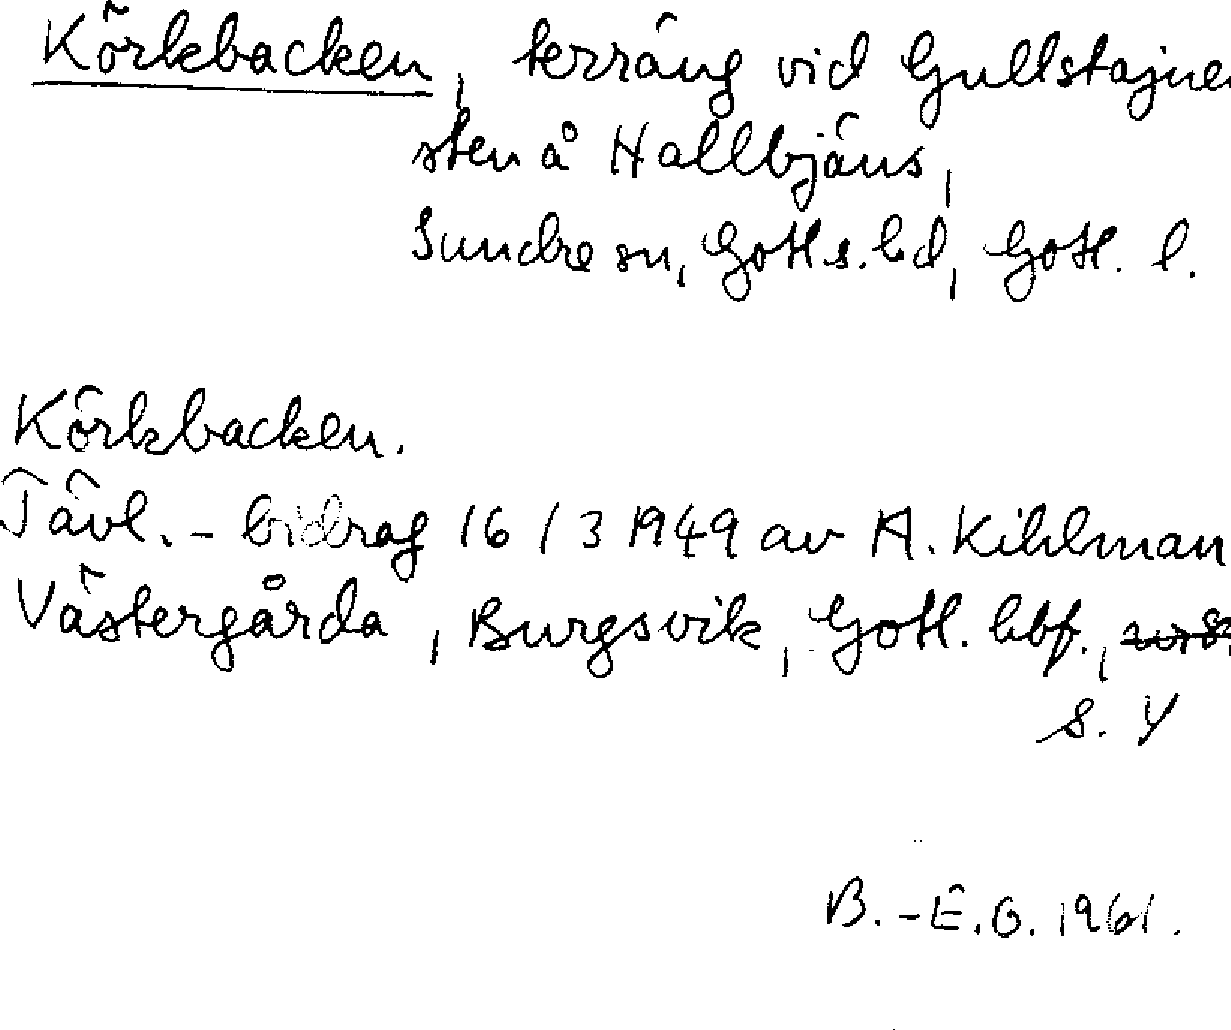 Körkbacken, terräng vid Gullstajne
sten å Hallbjäns,
Sundre sn, Gotl s. hd, Gotl. l.
Körkbacken.
Tävl.- bidrag 16/3 1949 av A. Kihlman
Västergårda, Burgsvik, Gotl. hbf.,
s. 4
B.-E.O. 1961.